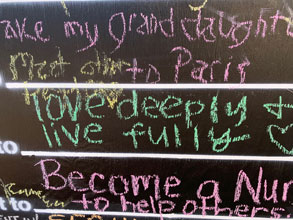 ake my granddaught
Meet
to Paris
love deeply +
live fully- ♡
to
Become a Nur
to help others
t to